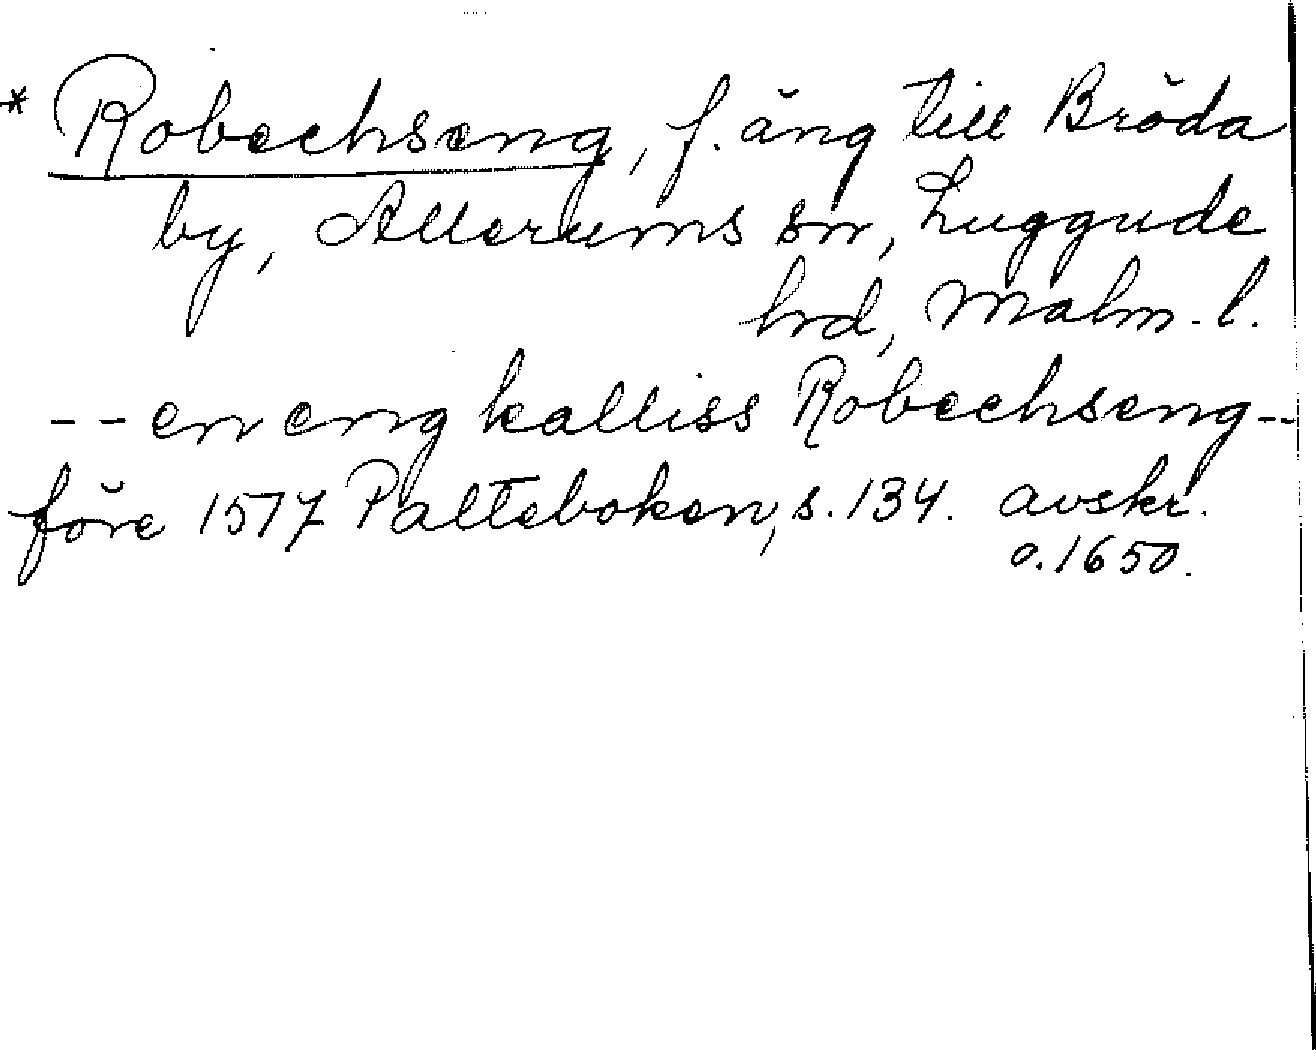 * Robechseng, f. äng till Bröda
by, Allerums sn, Luggude
hrd, Malm. l.
-- en eng kalliss Robechseng--
före 1577 Palteboken, s. 134. avskr.
o. 1650.